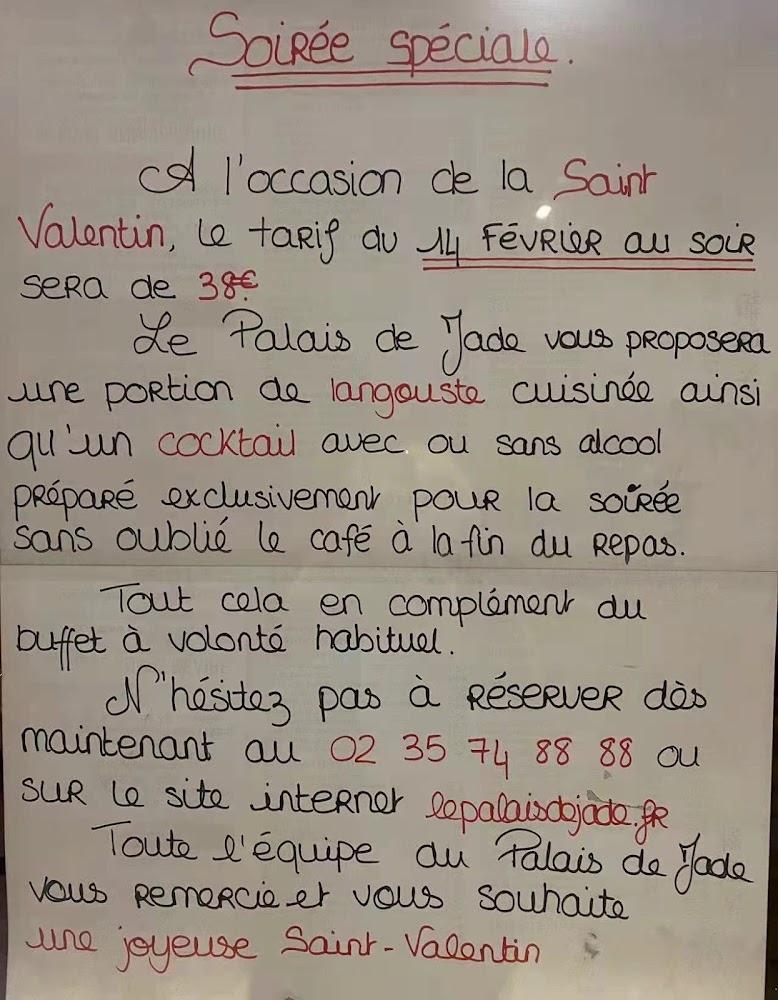 Soirée spéciale.
A l'occasion de la Saint
Valentin, le tarif du 14 FÉVRIER au soir
sera de 38€
Le Palais de Jade vous proposera
une portion de langouste cuisinée ainsi
qu'un cocktail avec ou sans alcool
préparé exclusivement pour la soirée
sans oublié le café à la fin du repas.
Tout cela en complément du
buffet à volonté habituel.
N'hésitez pas à réserver dès
maintenant au 02 35 74 88 88 ou
sur le site internet lepalaisdejade.fr
Toute l'équipe du Palais de Jade
vous remercie et vous souhaite
une joyeuse Saint-Valentin